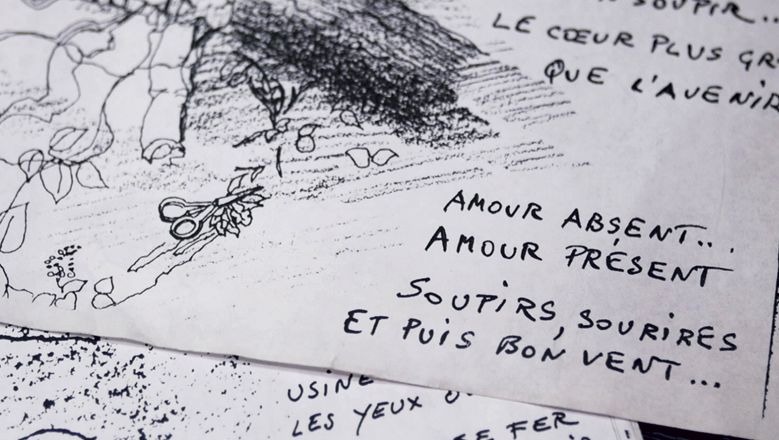 SOUPIR...
LE CŒUR PLUS
QUE L'AVENIR
AMOUR ABSENT...
AMOUR PRÉSENT
SOUPIRS, SOURIRES
ET PUIS BON VENT...
USINE
LES YEUX
FER